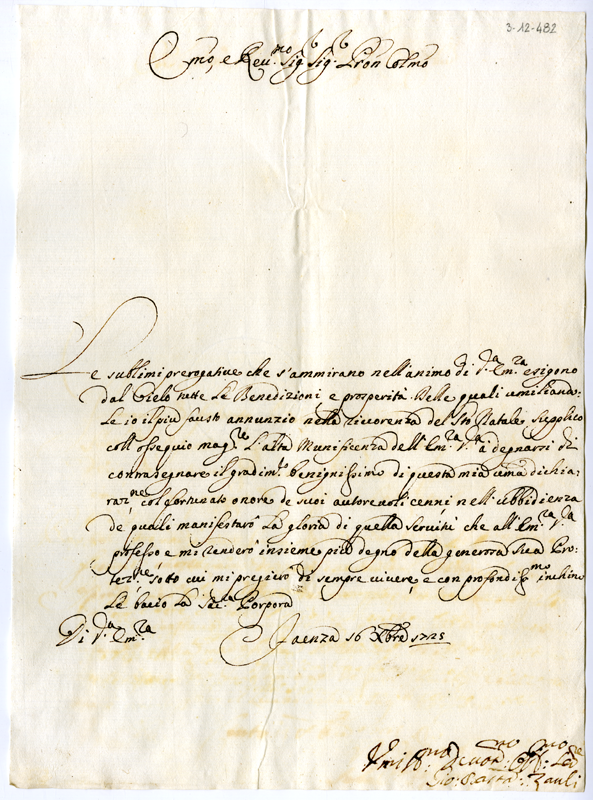 3-12-482
Emo, e Reu.mo Sig.r Sig.r Pron Colmo
Le sublimi prerogatiue che s'ammirano nell'animo di V.a Em.za esigono
dal Cielo tutte le Benedizioni e prosperità delle quali umiliando:
le io il piu fausto annunzio nella ricorenza del Sto Natale, supplico
coll'ossequio mag.re L'alta Munificenza dell'Em.za V.a a degnarsi di
contrasegnare il gradim.to benignissimo di questa mia uma dichia:
raz.ne col fortunato onore de suoi autoreuoli cenni nell'ubbidienza
de quali manifestarò La gloria di quella seruitù che all'Em.za V.a
professo e mi renderò insieme più degno della generosa sua Pro:
tez.ne sotto cui mi pregierò di sempre viuere, e con profondiss.mo inchino
Le bacio La Sac.a Porpora
Di V.a Em.za
Faenza 16 Xbre 1725
Vmiliss.mo Deuot.mo Obl.mo
Gio: Batta: Zauli